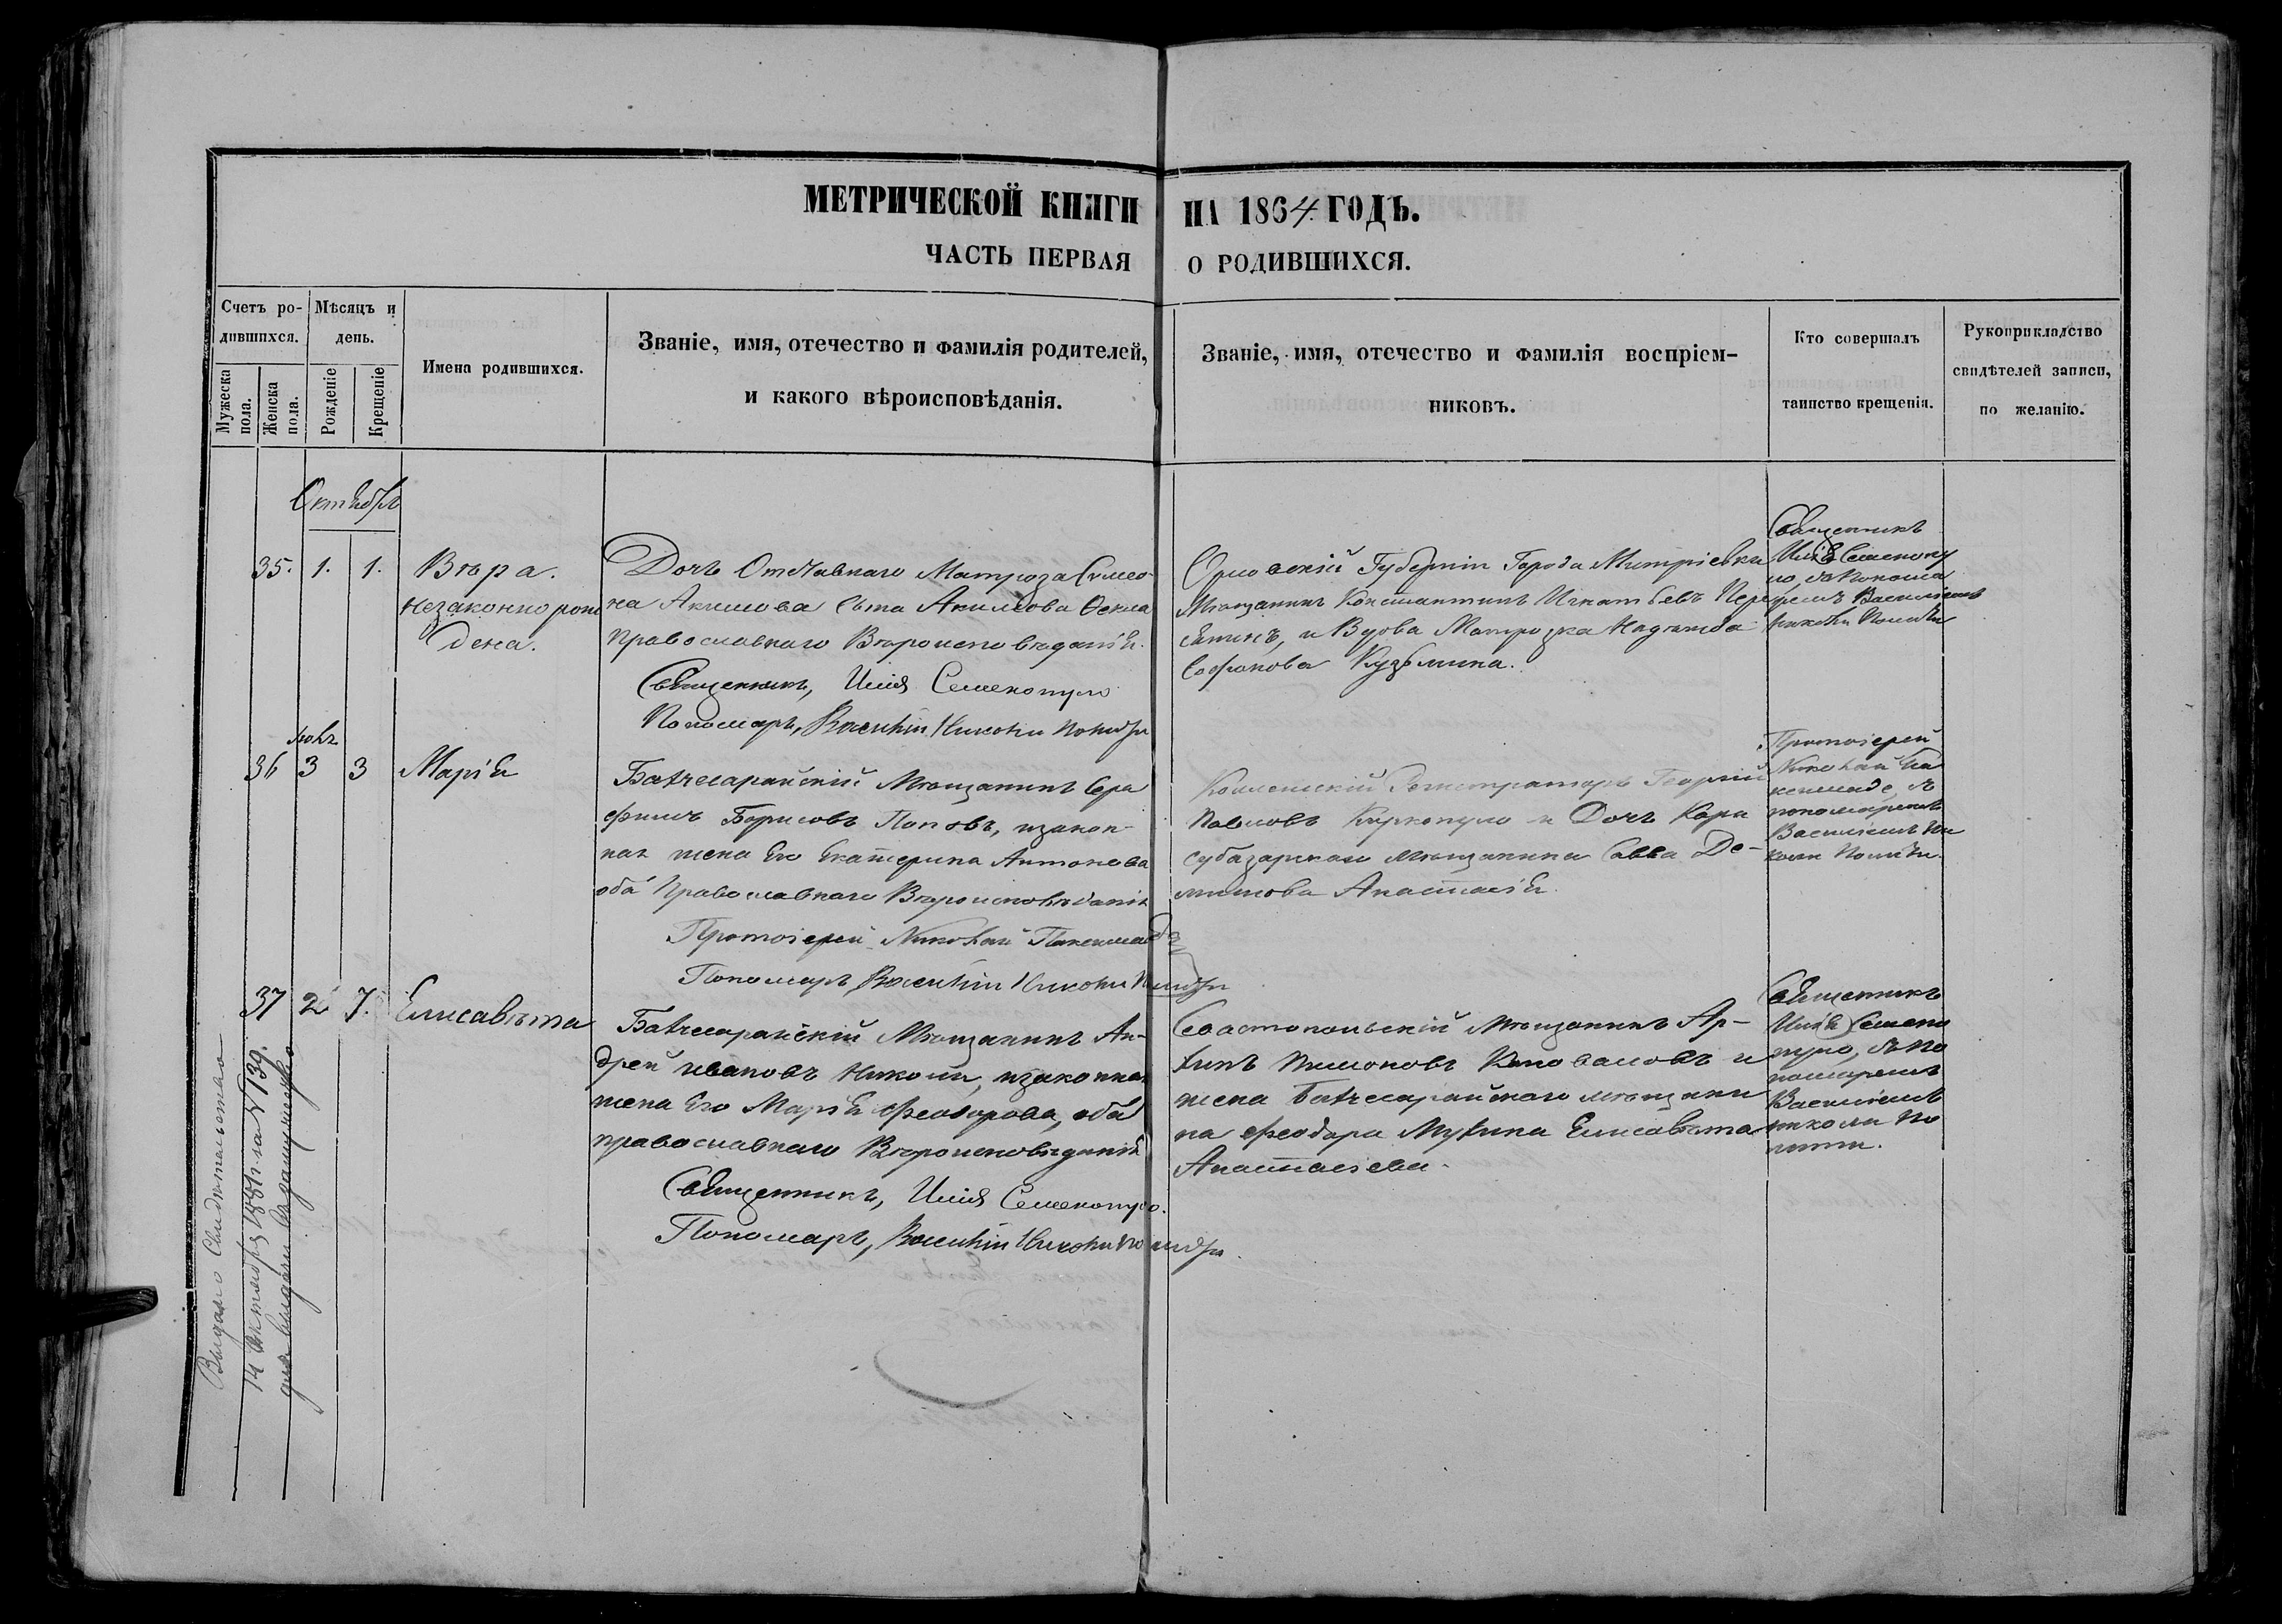 МЕТРИЧЕСКОЙ КНИГИ НА 1864 ГОДЪ.
ЧАСТЬ ПЕРВАЯ О РОДИВШИХСЯ.
Счетъ родившихся.
Мужеска пола.
Женска пола.
Мѣсяцъ и день.
Рожденіе
Крещеніе
Имена родившихся.
Званіе, имя, отечество и фамилія родителей,
и какого вѣроисповѣданія.
Званіе, имя, отечество и фамилія воспріем-
никовъ.
Кто совершалъ
таинство крещенія.
Рукоприкладство
свидѣтелей записи,
по желанію.
Октября
35. 1. 1.
Вѣра.
незаконно рож
дена.
Дочь Отставнаго Матроза Симео
на Акимова
православнаго Вѣроисповѣданія.
Священникъ, Илія Семенопуло
Пономарь, Василій Николи
Орловскій Губерніи Города Митріевки
Мѣщанинъ Константинъ Игнатьевъ
и Вдова Матрозка Надежда
Софронова Кузьмина.
Священникъ
Илія Семенопу
ло, съ Понома
ремъ Василіемъ
Николи
36 3 3
Марія
Бахчесарайскій Мѣщанинъ Сера
фимъ Борисовъ Поповъ, изакон-
ная жена Его Екатерина Антонова
оба Православнаго Вѣроисповѣданія
Протоіерей Николай
Пономарь Василій Николи
Коллежскій Регистраторъ Георгій
Павловъ и Дочь Кара
субазарскаго мѣщанина Савва Де-
Анастасія.
Протоіерей
Николай
съ
пономаремъ
Василіемъ Ни
коли
37 2 7.
Елисавѣта
Бахчесарайскій Мѣщанинъ Ан-
дрей Ивановъ Николи, изаконная
жена Его Марія Феодорова, оба
православнаго Вѣроисповѣданія
Священникъ, Илія Семенопуло.
Пономарь, Василій Николи
Севастопольскій мѣщанинъ Ар-
хипъ Коноваловъ и
жена Бахчесарайскаго мѣщани
на Феодора Мухина Елисавѣта
Анастасіева.
Священникъ
Илія Семено
пуло, съ по
номаремъ
Василіемъ
николи
Выдано Свидѣтельство
14 Октября 1881 г. за № 139.
для выдачи въ замужество